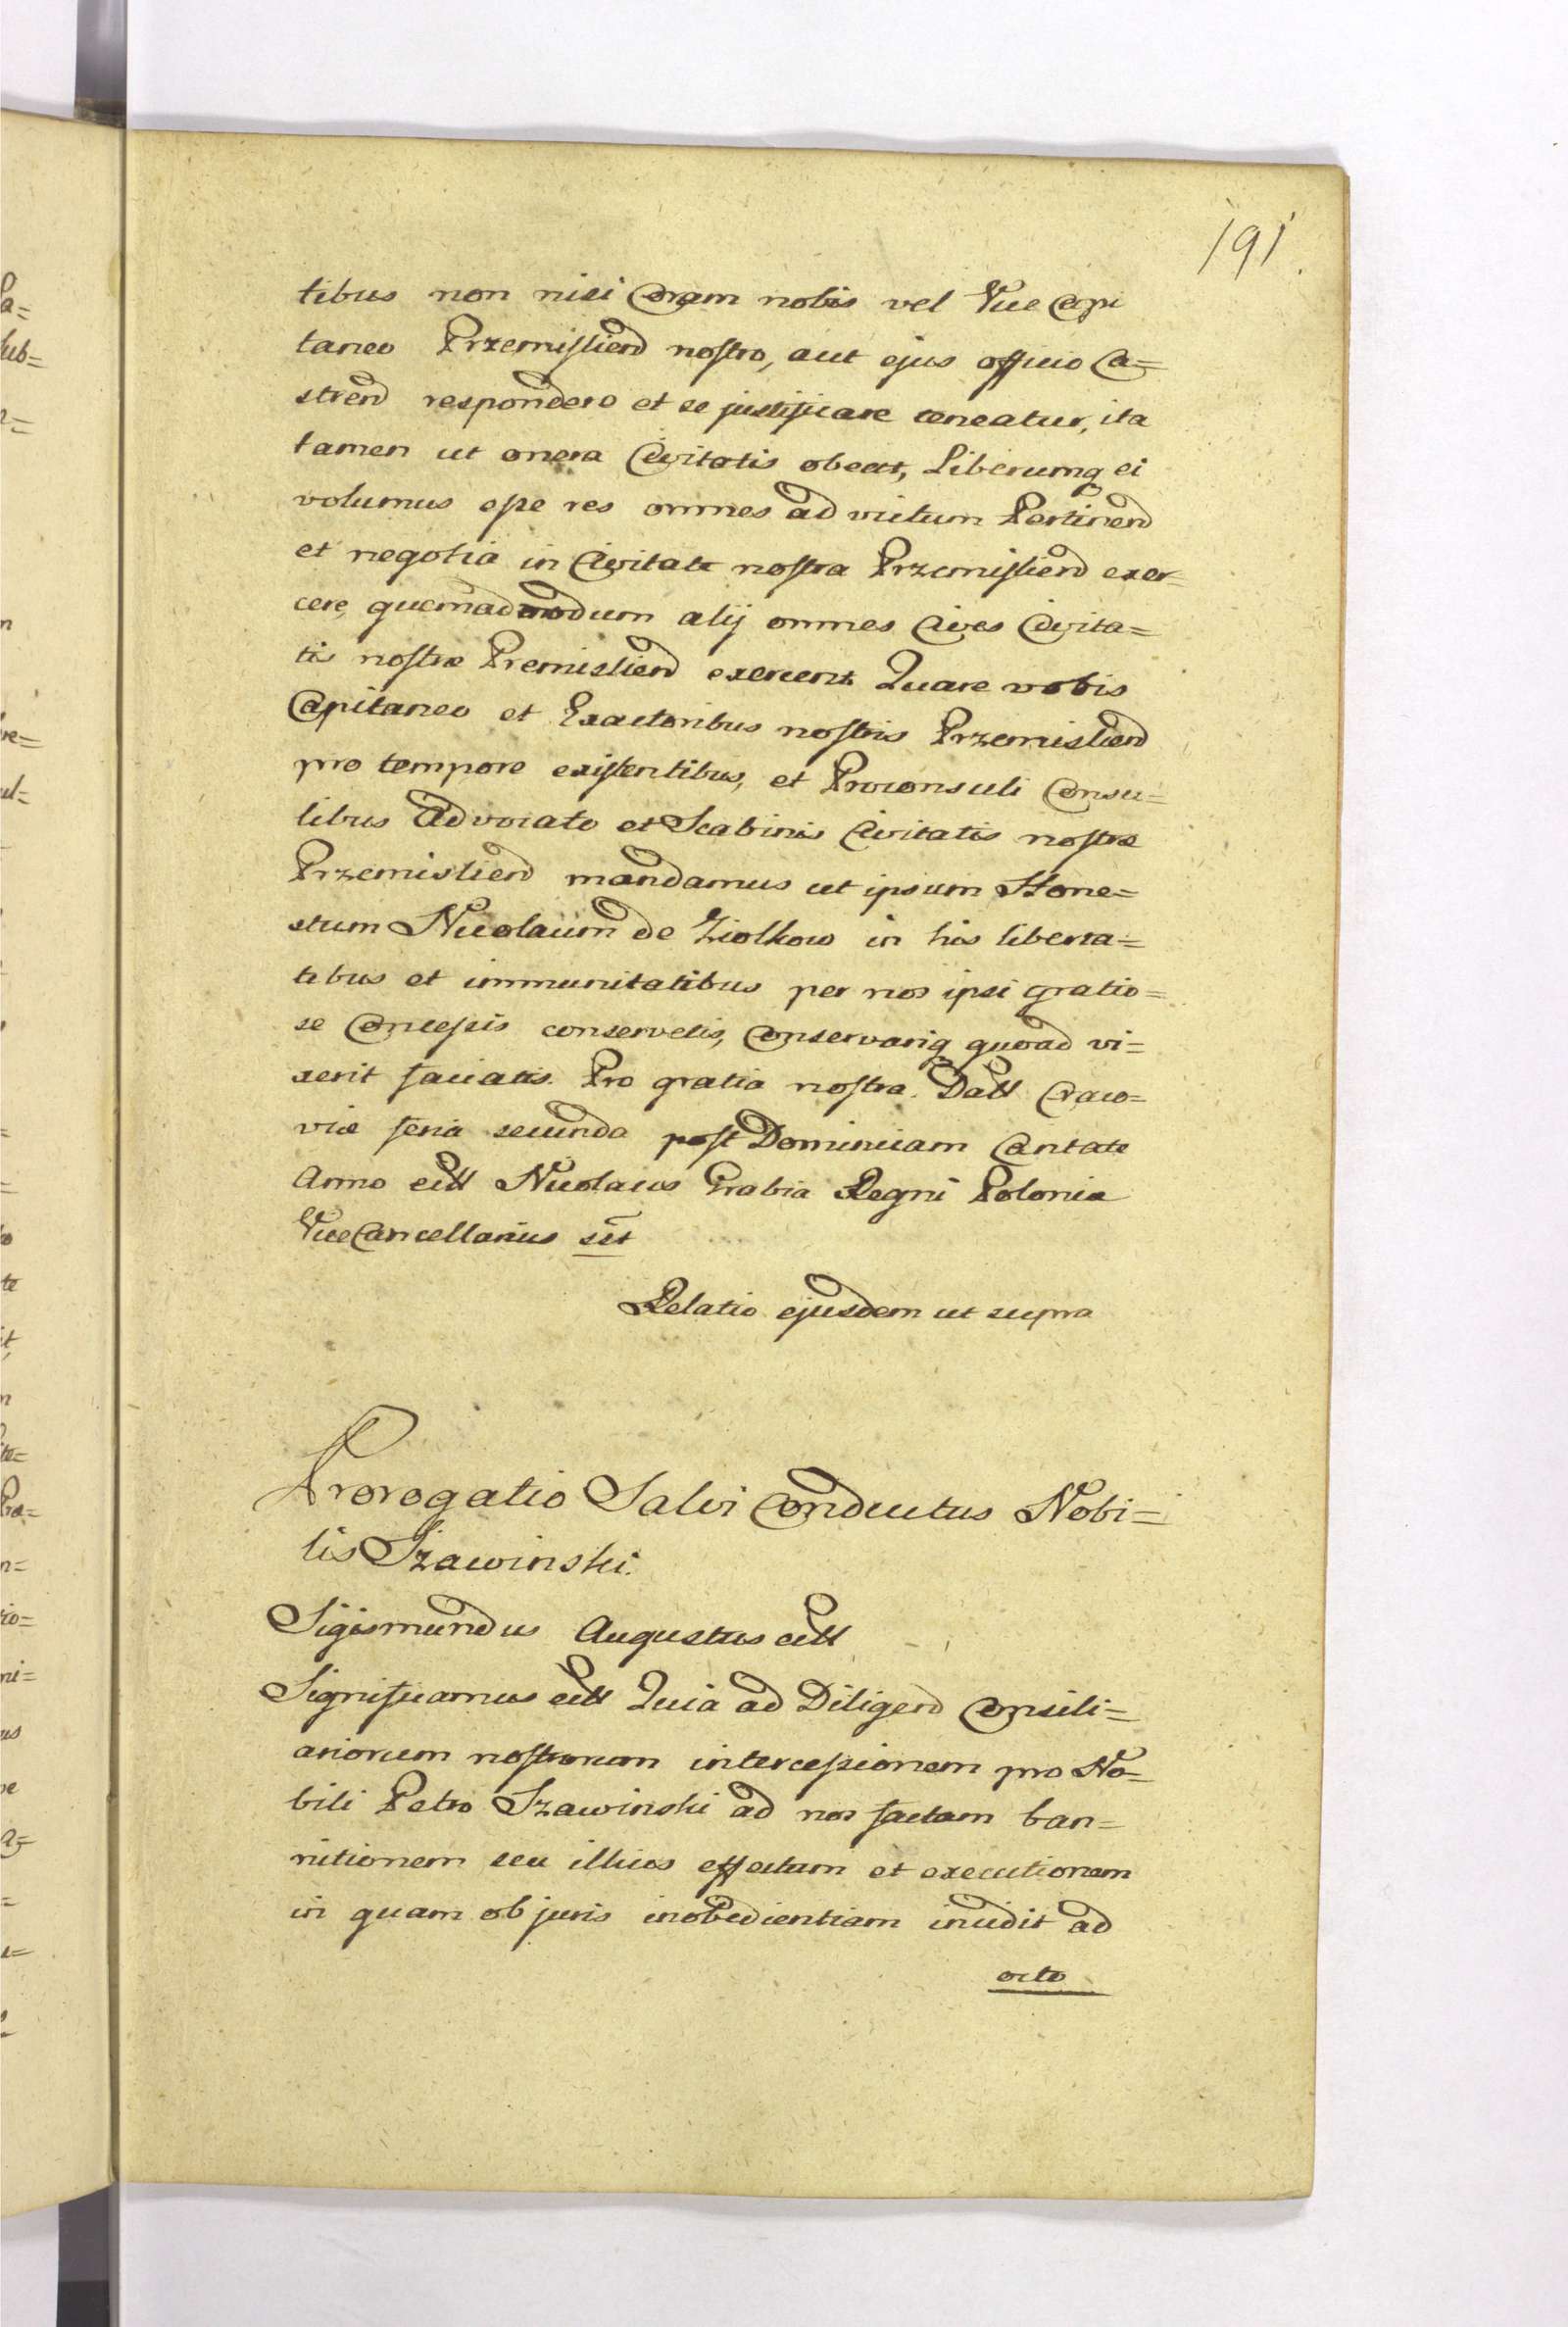 191.
tibus non nisi Coram nobis vel Vice Capi
taneo Przemislien̄ nostro, aut ejus officio Ca=
stren̄ respondere et se justificare teneatur, ita
tamen ut onera Civitatis obeat, Liberumq ei
volumus esse res omnes ad victum Pertinen̄
et negotia in Civitate nostra Przemislien̄ exer
cere, quemadmodum alij omnes Cives Civita=
tis nostræ Premislien̄ exercent Quare vobis
Capitaneo et Exactoribus nostris Przemislien̄
pro tempore existentibus, et Proconsuli Consu=
libus Advocato et Scabinis Civitatis nostræ
Przemislien̄ mandamus ut ipsum Hone=
stum Nicolaum de Ziolkow in his liberta=
tibus et immunitatibus per nos ipsi gratio=
se Concessis conservetis, Conservariq quoad vi=
xerit faciatis. Pro gratia nostra. Datt Craco=
viæ feria secunda post Dominicam Cantate
Anno ett Nicolaus Grabia Regni Poloniæ
ViceCancellarius sst
Relatio ejusdem ut supra
Prorogatio Salvi Conductus Nobi=
lis Szawinski.
Sigismundus Augustus ett
Significamus ett Quia ad Diligen̄ Consili=
ariorum nostrorum intercessionem pro No=
bili Petro Szawinski ad nos factam ban=
nitionem seu illius effectum et executionem
in quam ob juris inobedientiam incidit ad
octo